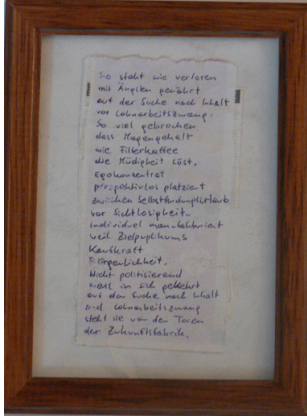 So steht wie verloren
mit Ängsten genährt
auf der Suche nach Inhalt
vor Lohnarbeitszwang.
So viel gebrochen
dass Magengehalt
wie Filterkaffee
die Müdigkeit löst.
Egokonzentrat
perspektivlos platziert
zwischen Selbstfindungsurlaub
vor Sichtlosigkeit.
Individuell manufakturiert
weil Zielpuplikums
Kaufkraft
Nicht politisierend
in sich gekehrt
auf der Suche nach Inhalt
und Lohnarbeitszwang
steht sie vor den Toren
der Zukunftsfabrik.